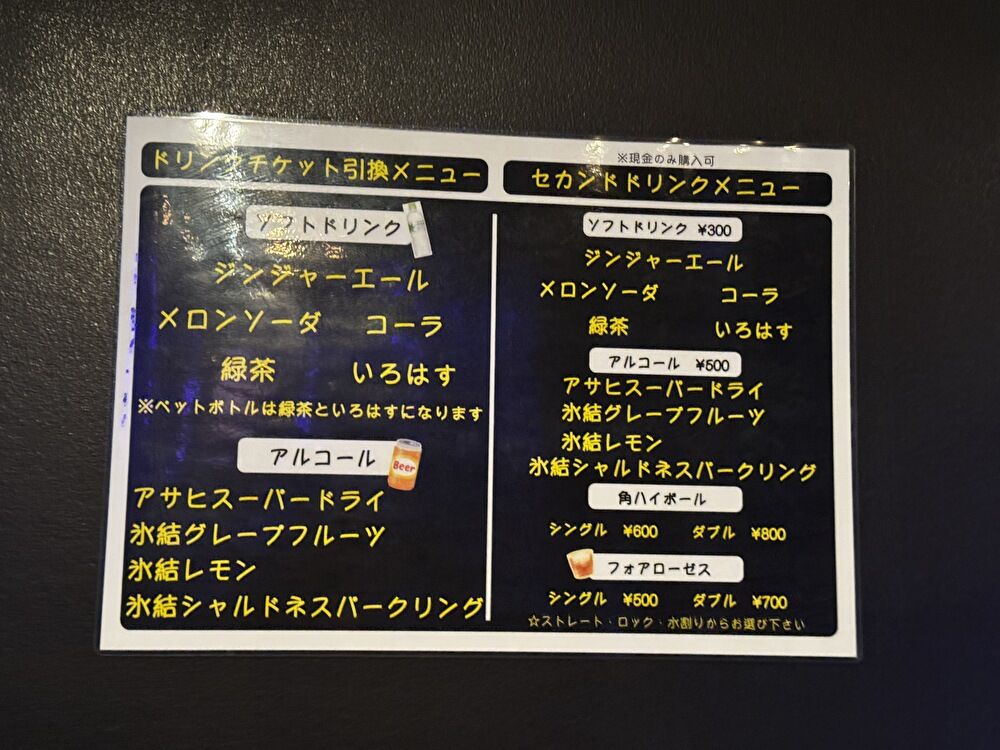 ドリンクチケット引換メニュー
ソフトドリンク
ジンジャーエール
メロンソーダ コーラ
緑茶 いろはす
※ペットボトルは緑茶といろはすになります
アルコール
Beer
アサヒスーパードライ
氷結グレープフルーツ
氷結レモン
氷結シャルドネスパークリング
※現金のみ購入可
セカンドドリンクメニュー
ソフトドリンク ¥300
ジンジャーエール
メロンソーダ コーラ
緑茶 いろはす
アルコール ¥500
アサヒスーパードライ
氷結グレープフルーツ
氷結レモン
氷結シャルドネスパークリング
角ハイボール
シングル ¥600 ダブル ¥800
フォアローゼス
シングル ¥500 ダブル ¥700
☆ストレート・ロック・水割りからお選び下さい